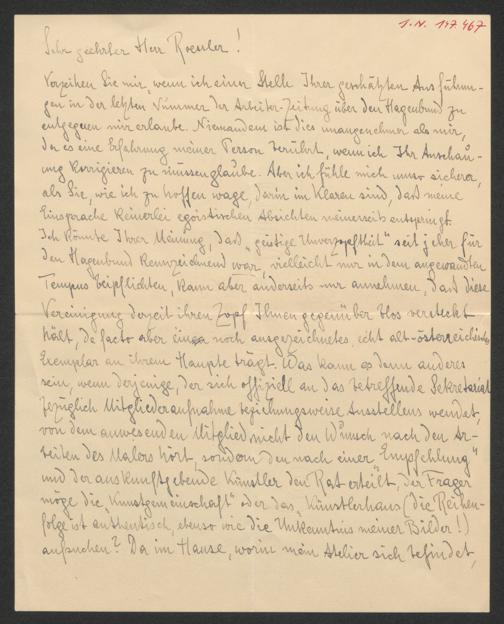 I.N. 147.467
Sehr geehrter Herr Roessler!
Verzeihen Sie mir, wenn ich einer Stelle Ihrer geschätzten Ausführun-
gen in der letzten Nummer der Arbeiter-Zeitung über den Hagenbund zu
entgegnen mir erlaube. Niemandem ist dies unangenehmer als mir,
da es eine Erfahrung meiner Person berührt, wenn ich Ihr Anschau-
ung korrigieren zu müssen glaube. Aber ich fühle mich umso sicherer,
als Sie, wie ich zu hoffen wage, darin im Klaren sind, daß meine
Einsprache keinerlei egoistischen Absichten meinerseits entspringt.
Ich könnte Ihrer Meinung, daß „geistige Unverzopftheit" seit jeher für
den Hagenbund kennzeichnend war, vielleicht nur in dem angewandten
Tempus beipflichten, kann aber anderseits nur annehmen, daß diese
Vereinigung derzeit ihren Zopf Ihnen gegenüber blos versteckt
hält, de facto aber ein noch ausgezeichnetes, echt alt-österreichisches
Exemplar an ihrem Haupte trägt. Was kann es denn anderes
sein, wenn derjenige, der sich offiziell an das betreffende Sekretariat
bezüglich Mitgliederaufnahme beziehungsweise Ausstellens wendet,
von dem anwesenden Mitglied nicht den Wunsch nach den Ar-
beiten des Malers hört, sondern den nach einer „Empfehlung"
und der auskunftgebende Künstler den Rat erteilt, der Frager
möge die „Kunstgemeinschaft" oder das „Künstlerhaus" (die Reihen-
folge ist authentisch, ebenso wie die Unkenntnis meiner Bilder!)
aufsuchen? Da im Hause, worin mein Atelier sich befindet,